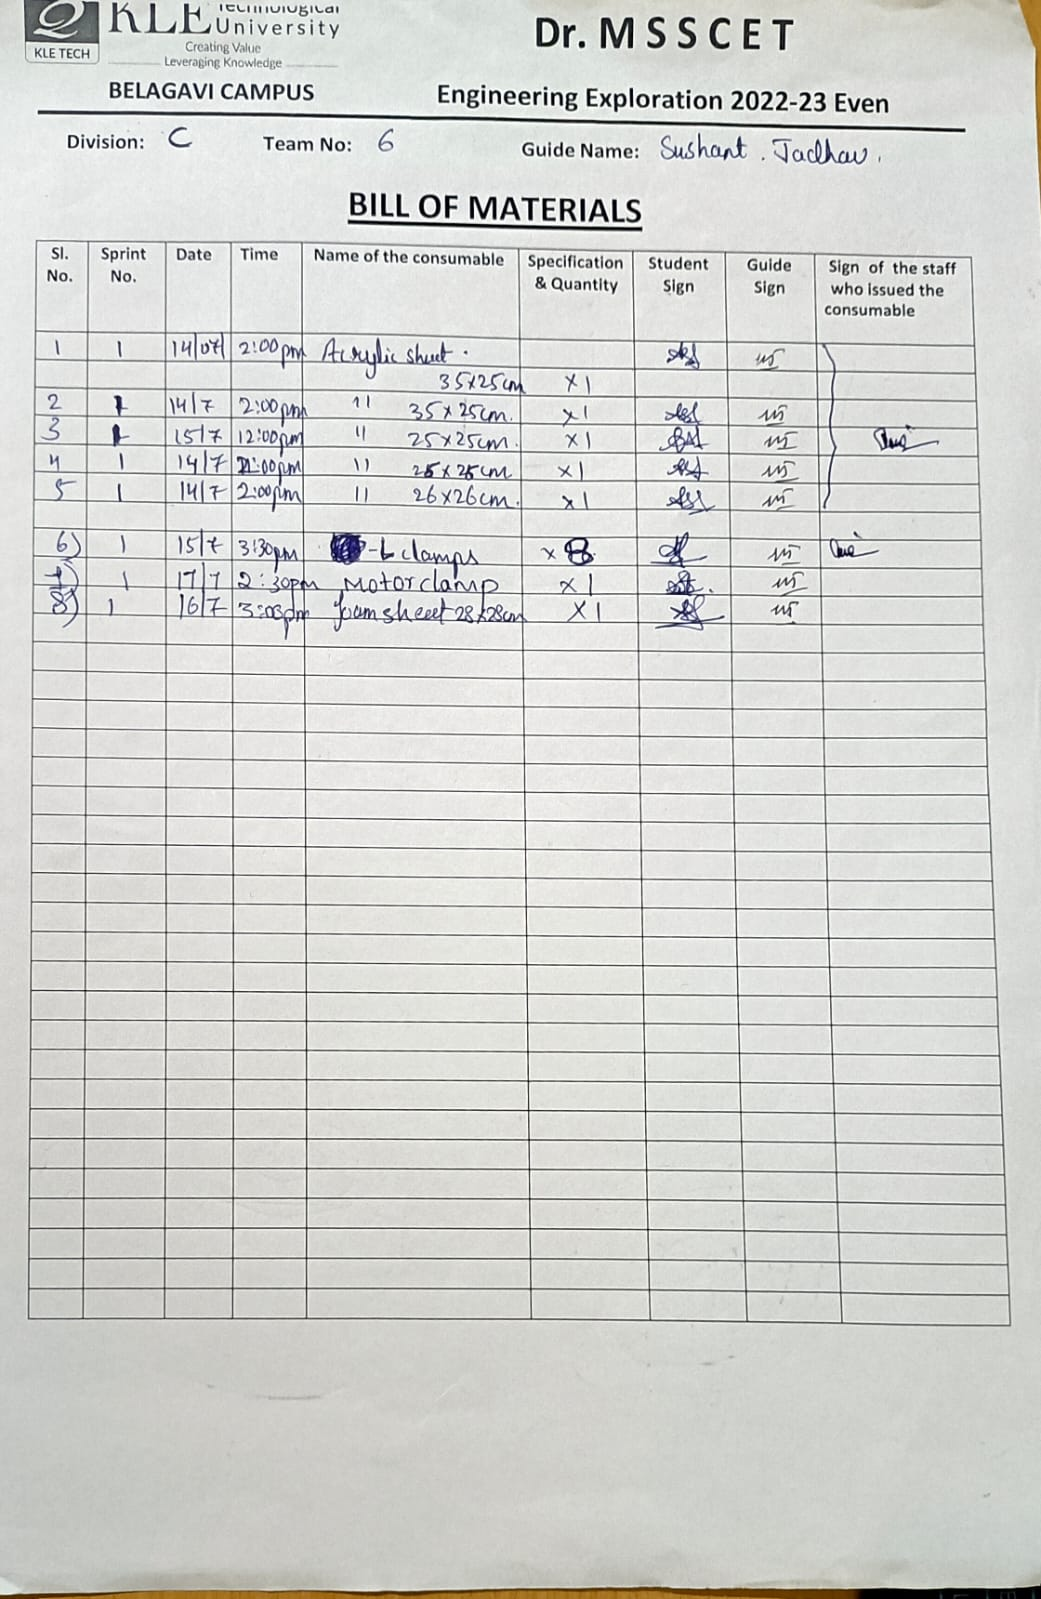 KLE Technological
University
Creating Value
Leveraging Knowledge
KLE TECH
Dr. M S S C E T
BELAGAVI CAMPUS
Engineering Exploration 2022-23 Even
Division: C Team No: 6 Guide Name: Sushant. Jadhav.
BILL OF MATERIALS
Sl. No. Sprint No. Date Time Name of the consumable Specification & Quantity Student Sign Guide Sign Sign of the staff who issued the consumable
1 1 14/07 2:00pm Acrylic sheet.
35x25cm x1
2 1 14/7 2:00pm 11 35x25cm. x1
3 1 15/7 12:00pm 11 25x25cm. x1
4 1 14/7 2:00pm 11 25x25cm x1
5 1 14/7 2:00pm 11 26x26cm. x1
6) 1 15/7 3:30pm -L clamps x 8
7) 1 17/7 2:30pm Motor clamp x1
8) 1 16/7 3:03pm foam sheeet 28x28cm x1